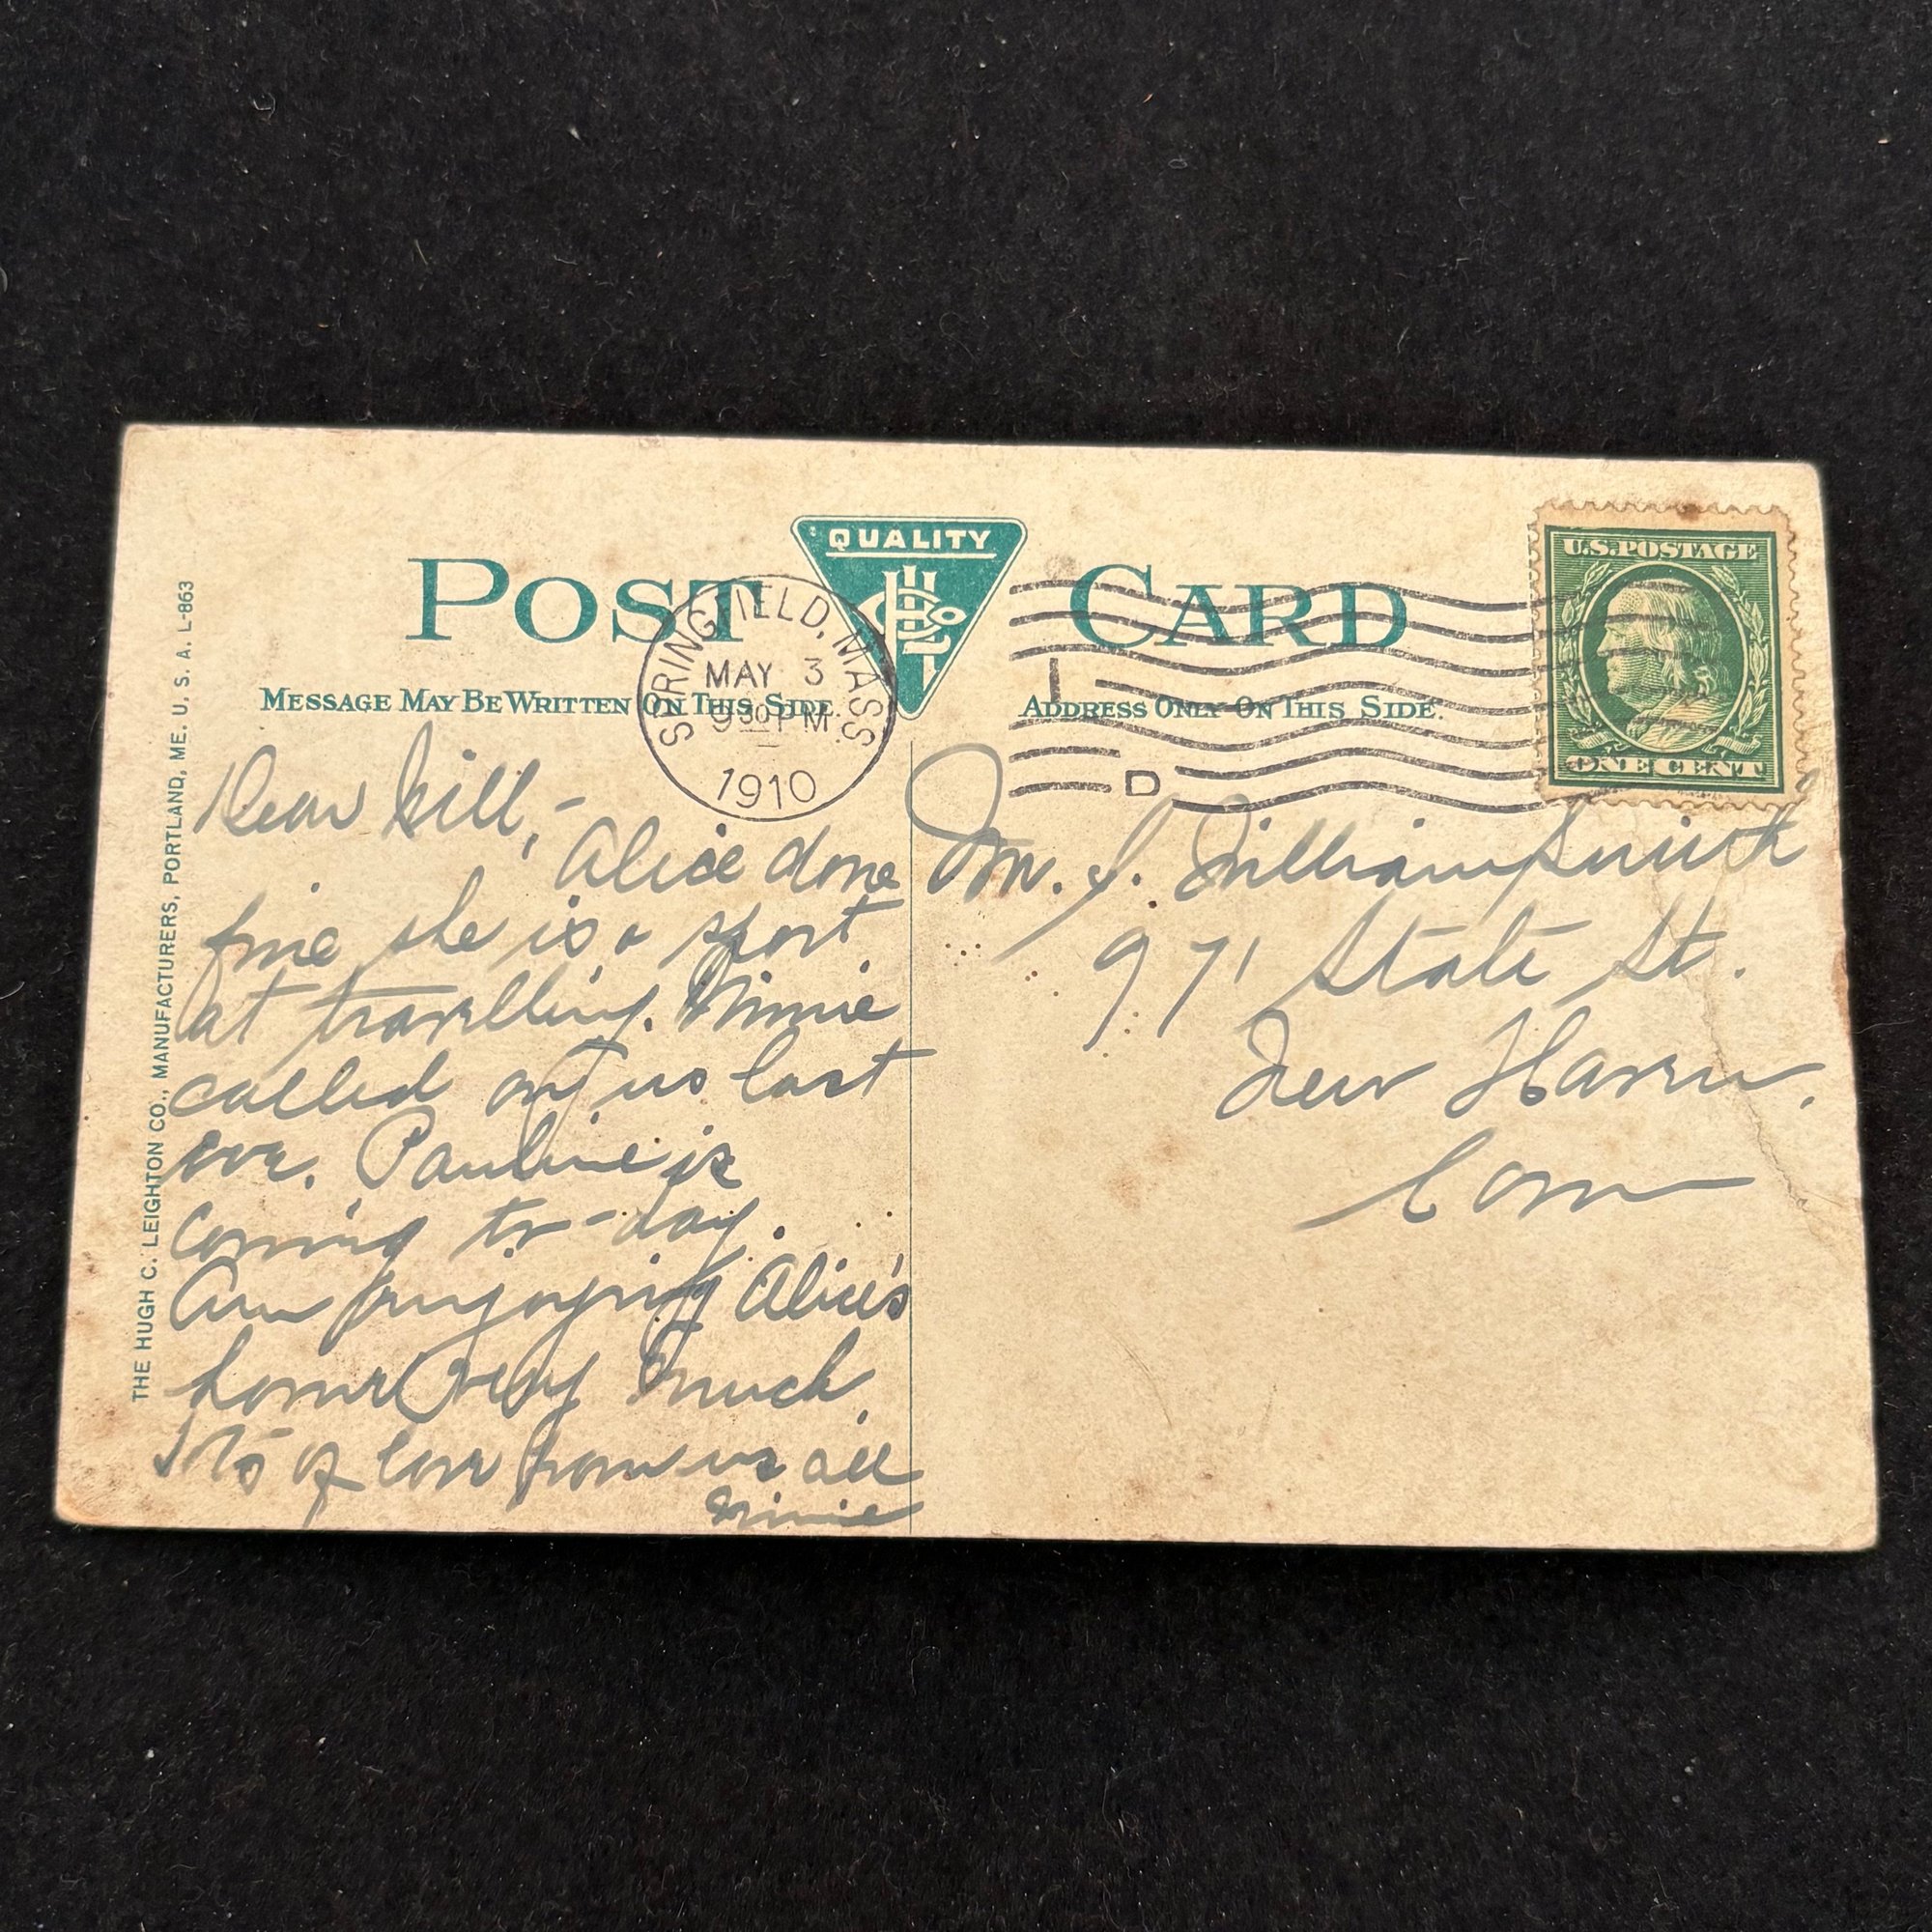 POST CARD
QUALITY
HCL Co
SPRINGFIELD, MASS.
MAY 3
9 30 PM
1910
D
U.S. POSTAGE
ONE CENT
MESSAGE MAY BE WRITTEN ON THIS SIDE.
ADDRESS ONLY ON THIS SIDE.
THE HUGH C. LEIGHTON CO., MANUFACTURERS, PORTLAND, ME. U. S. A. L-863
Dear Will, -
Alice done
fine she is a sport
at travelling. Minnie
called on us last
eve. Pauline is
coming to-day.
Am enjoying Alice's
home very much.
Lots of love from us all
Minnie
971 State St.
New Haven,
Conn